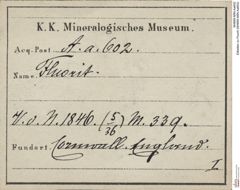 K. K. Mineralogisches Museum.
Acq.-Post A. a. 602.
Name Fluorit.
V. d. N. 1846. (5/36) M. 339.
Fundort Cornwall. England.
I